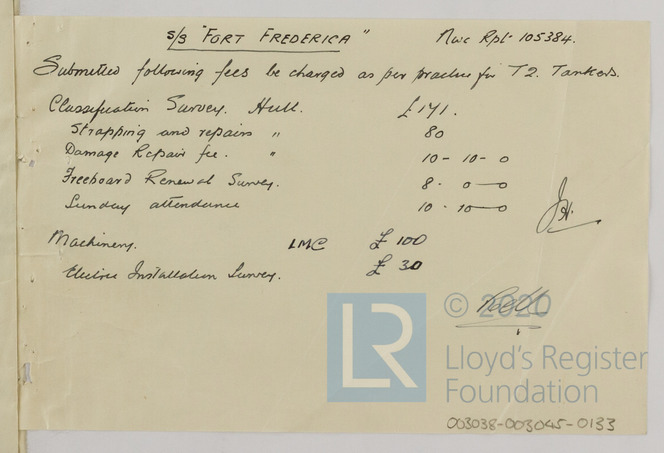 s/s "FORT FREDERICA" Nwc Rpt 105384.
Submitted following fees be charged as per practice for T2. Tankers.
Classification Survey. Hull. £171.
Strapping and repairs " 80
Damage Repair fee. " 10 - 10 - 0
Freeboard Renewal Survey. 8 - 0 - 0
Sunday attendance 10 - 10 - 0
Machinery. LMC £100
Electric Installation Survey. £30
© 2020
LR
Lloyd's Register
Foundation
003038-003045-0133